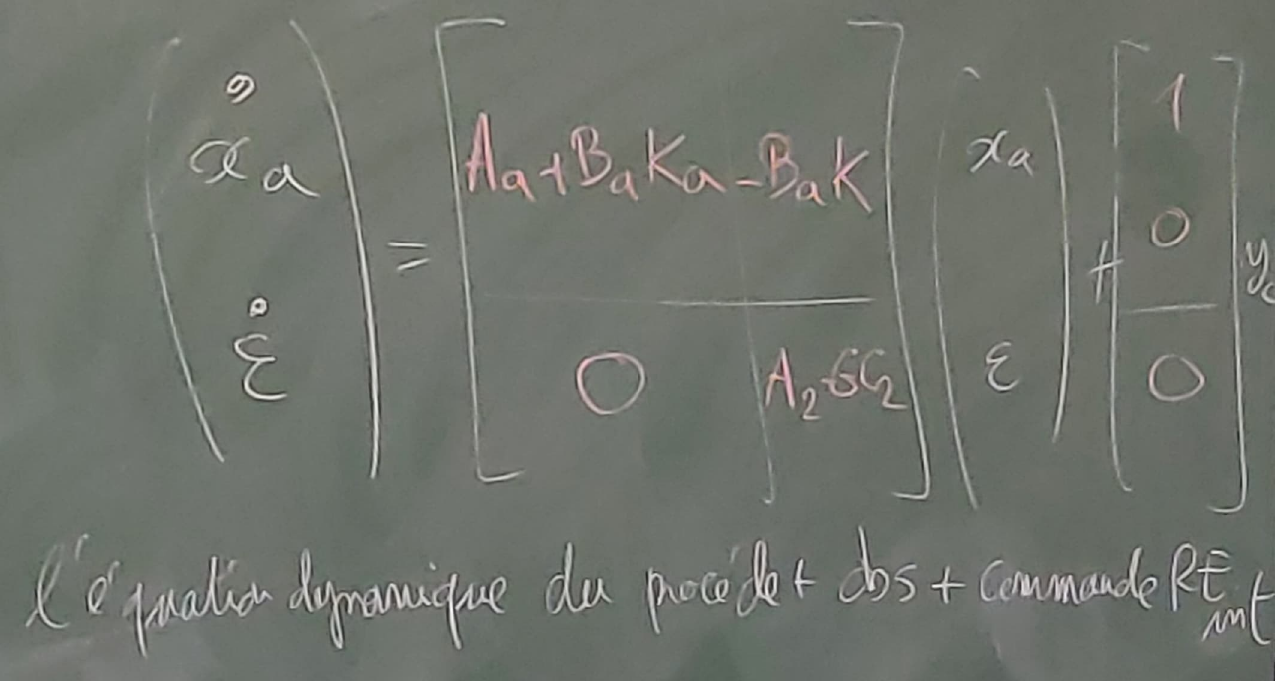 (ẋₐ ; ε̇) = [Aₐ+BₐKₐ -BₐK ; 0 A₂-GC₂] (xₐ ; ε) + [1 ; 0 ; 0] y꜀
l'équation dynamique du procédé + obs + commande RE int